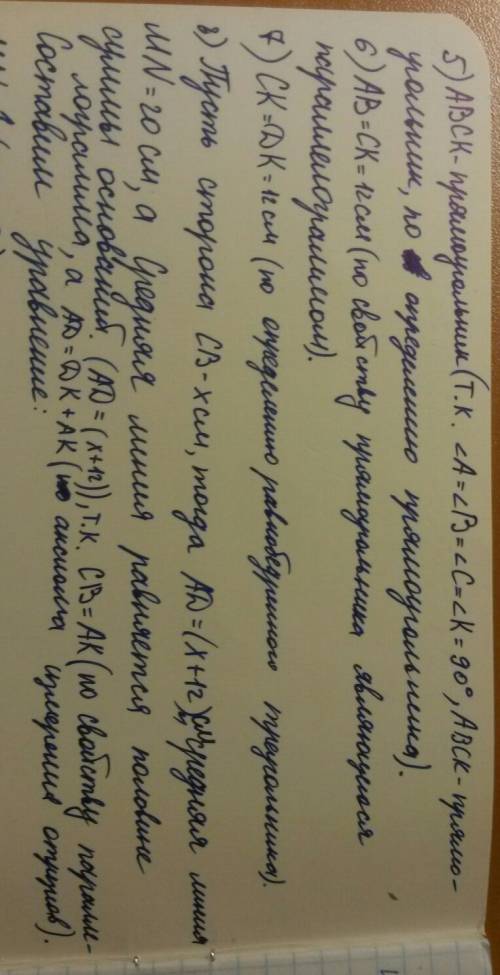 5) ABCK - прямоугольник (т.к. ∠A=∠B=∠C=∠K=90°, ABCK - прямо-
угольник, по определению прямоугольника).
6) AB=CK=12см (по свойству прямоугольника являющегося
параллелограммом).
7) CK=DK=12см (по определению равнобедренного треугольника).
8) Пусть сторона CB - x см, тогда AD=(x+12)см, средняя линия
MN=20см, а средняя линия равняется половине
суммы оснований. (AD=(x+12)), т.к. CB=AK (по свойству паралле-
лограмма, а AD=DK+AK (по аксиома измерения отрезков).
Составим уравнение: